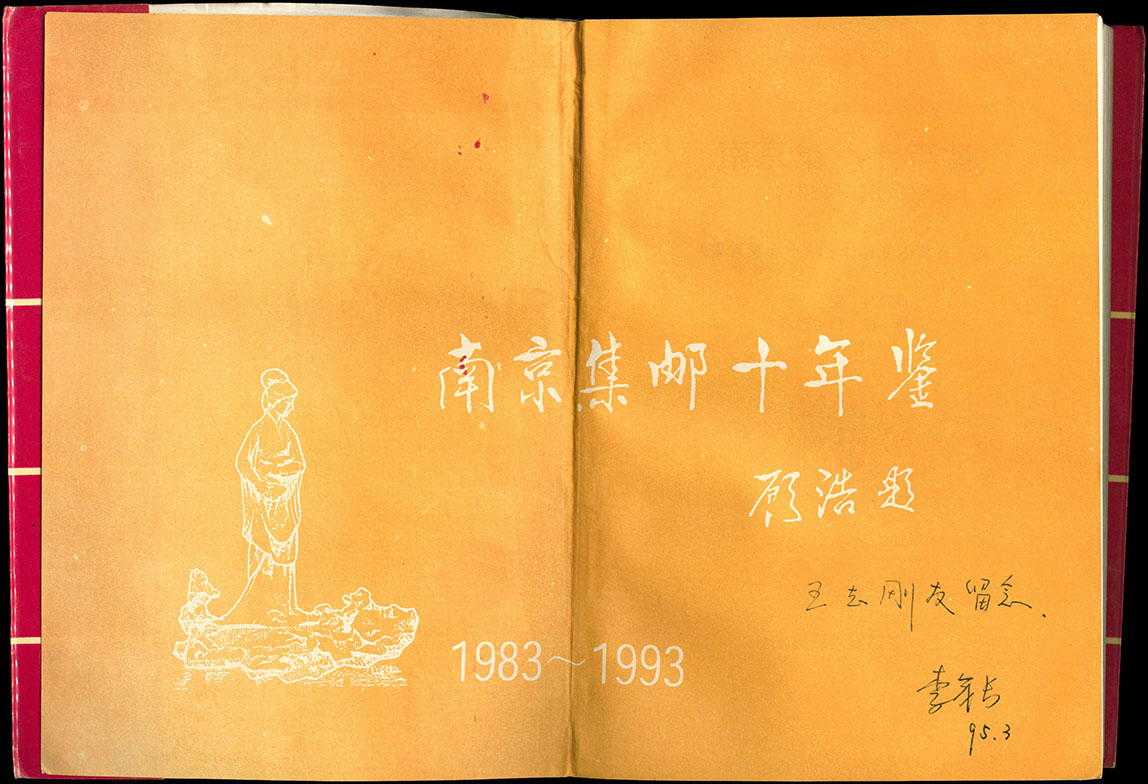 南京集邮十年鉴
顾浩题
1983~1993
王志刚友留念.
李年长
95.3